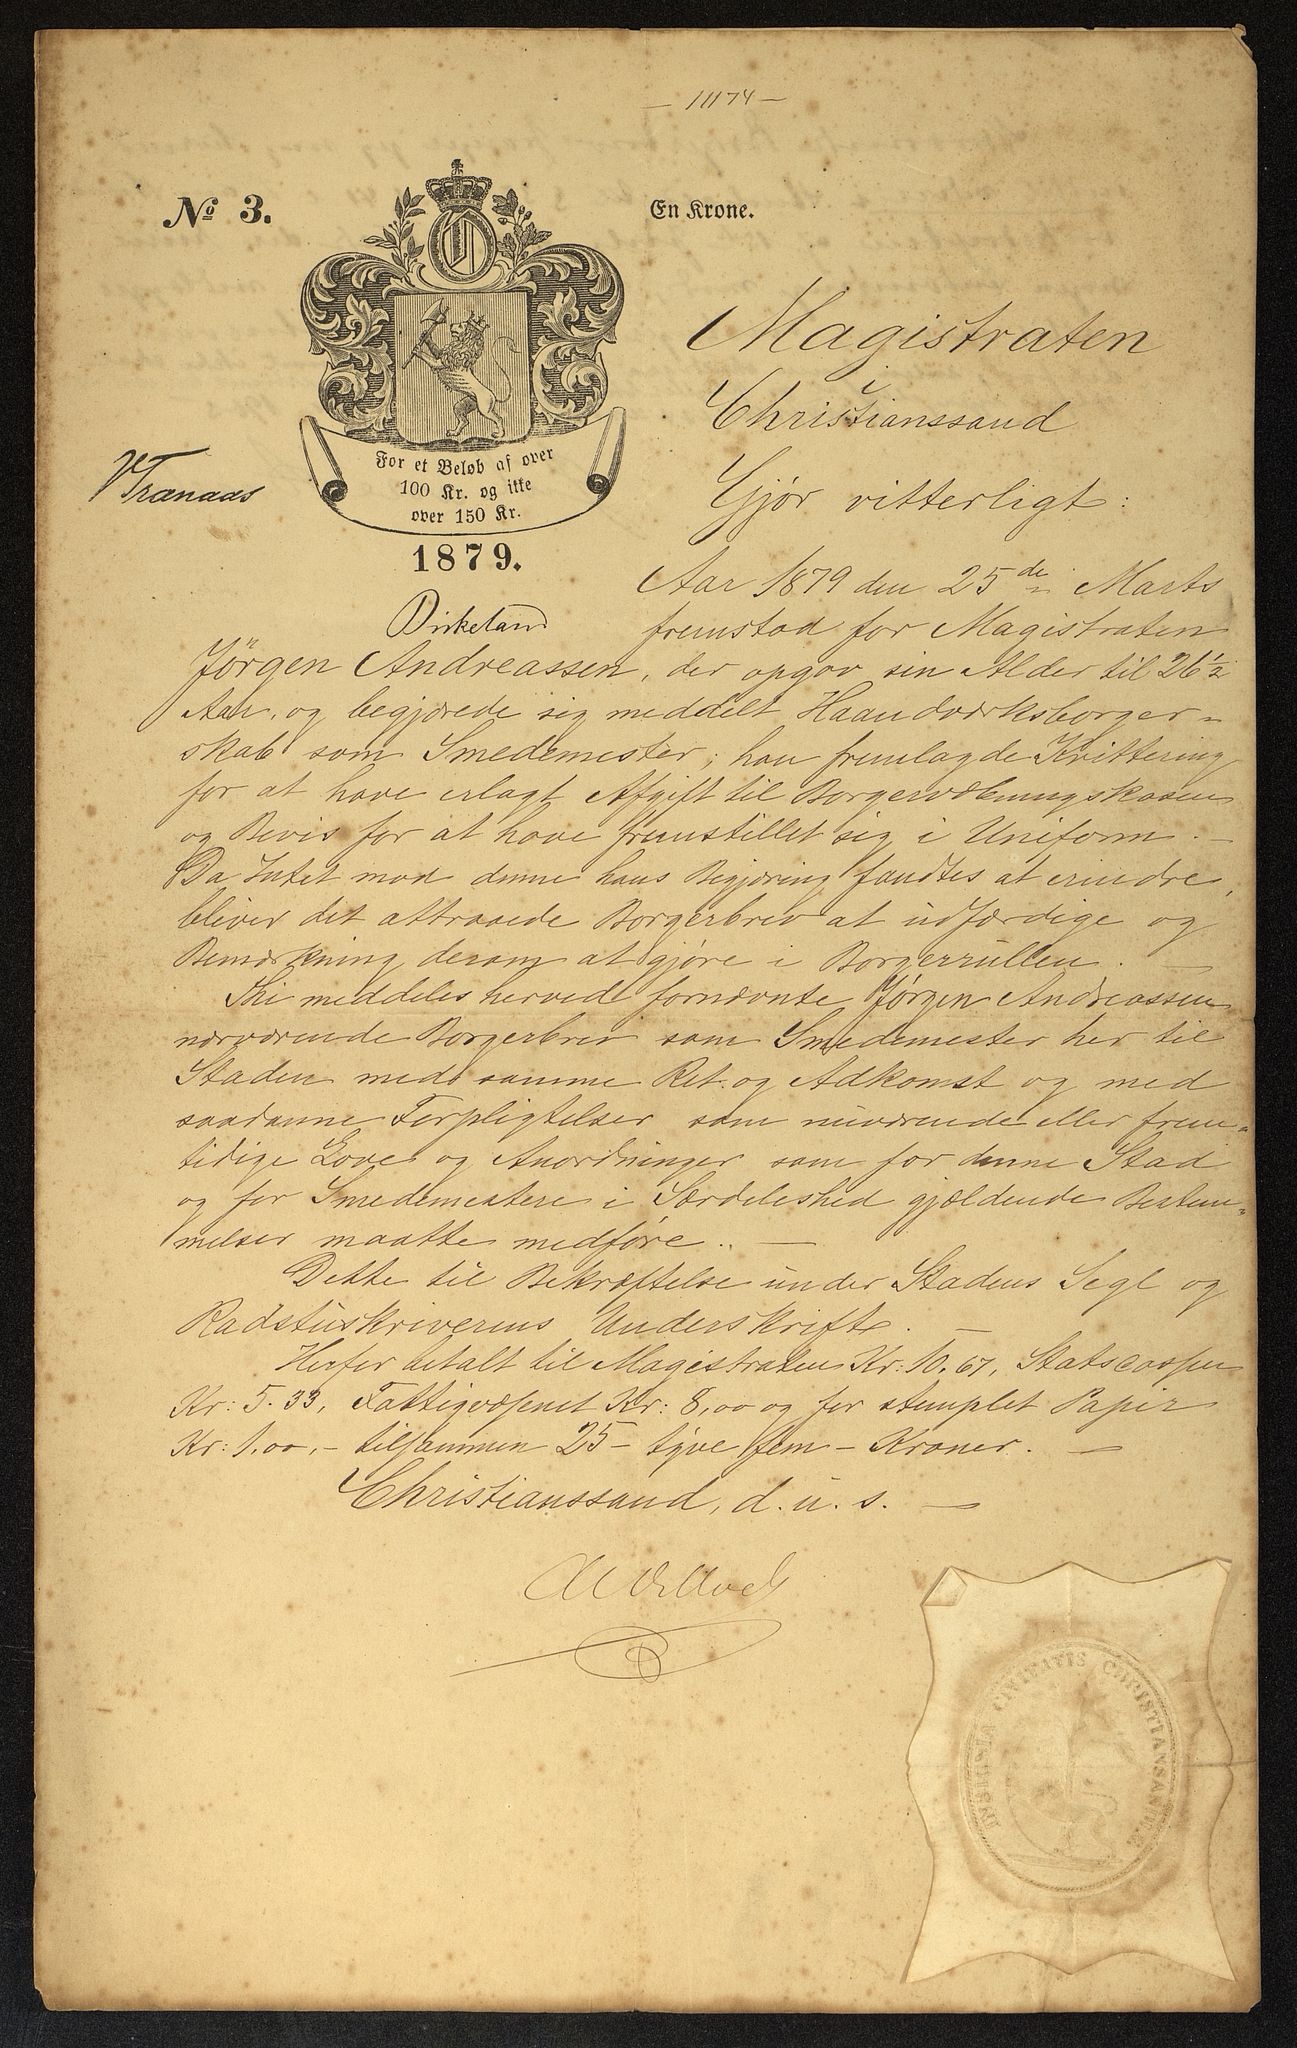 — 11174 —
No 3.
En Krone.
O
Magistraten
i
Christianssand
Gjør vitterligt:
For et Beløb af over
100 Kr. og ikke
over 150 Kr.
1879.
VTranaas
Aar 1879 den 25de Marts
Birkeland
fremstod for Magistraten
Jørgen Andreassen, der opgav sin Alder til 26½
Aar, og begjærede sig meddelt Haandværksborger-
skab som Smedemester; han fremlagde Kvittering
for at have erlagt Afgift til Borgervæbningskassen
og Bevis for at have fremstillet sig i Uniform. —
Da Intet mod denne hans Begjæring fandtes at erindre,
bliver det attraaede Borgerbrev at udfærdige og
Bemærkning derom at gjøre i Borgerrullen. —
Thi meddeles herved fornævnte Jørgen Andreassen
nærværende Borgerbrev som Smedemester her til
Staden med samme Ret og Adkomst og med
saadanne Forpligtelser som nuværende eller frem-
tidige Love og Anordninger som for denne Stad
og for Smedemestere i Særdeleshed gjældende Bestem-
melser maatte medføre. —
Dette til Bekræftelse under Stadens Segl og
Raadstuskriverens Underskrift. —
Herfor betalt til Magistraten Kr: 10.67, Statscassen
Kr: 5.33, Fattigvæsenet Kr: 8,00 og for stemplet Papir
Kr: 1,00, — tilsammen 25 — tyve fem — Kroner. —
Christianssand, d. u. s. —
INSIGNIA CIVITATIS CHRISTIANSANDIÆ